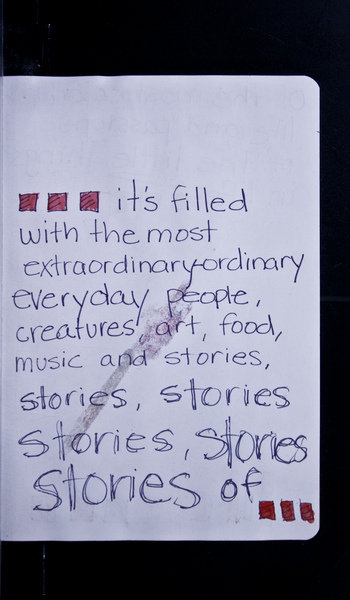 it's filled
with the most
extraordinary-ordinary
everyday people,
creatures, art, food,
music and stories,
stories, stories
stories, stories
stories of